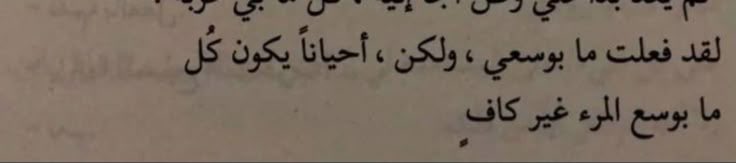 لقد فعلت ما بوسعي ، ولكن ، أحياناً يكون كُل
ما بوسع المرء غير كافٍ